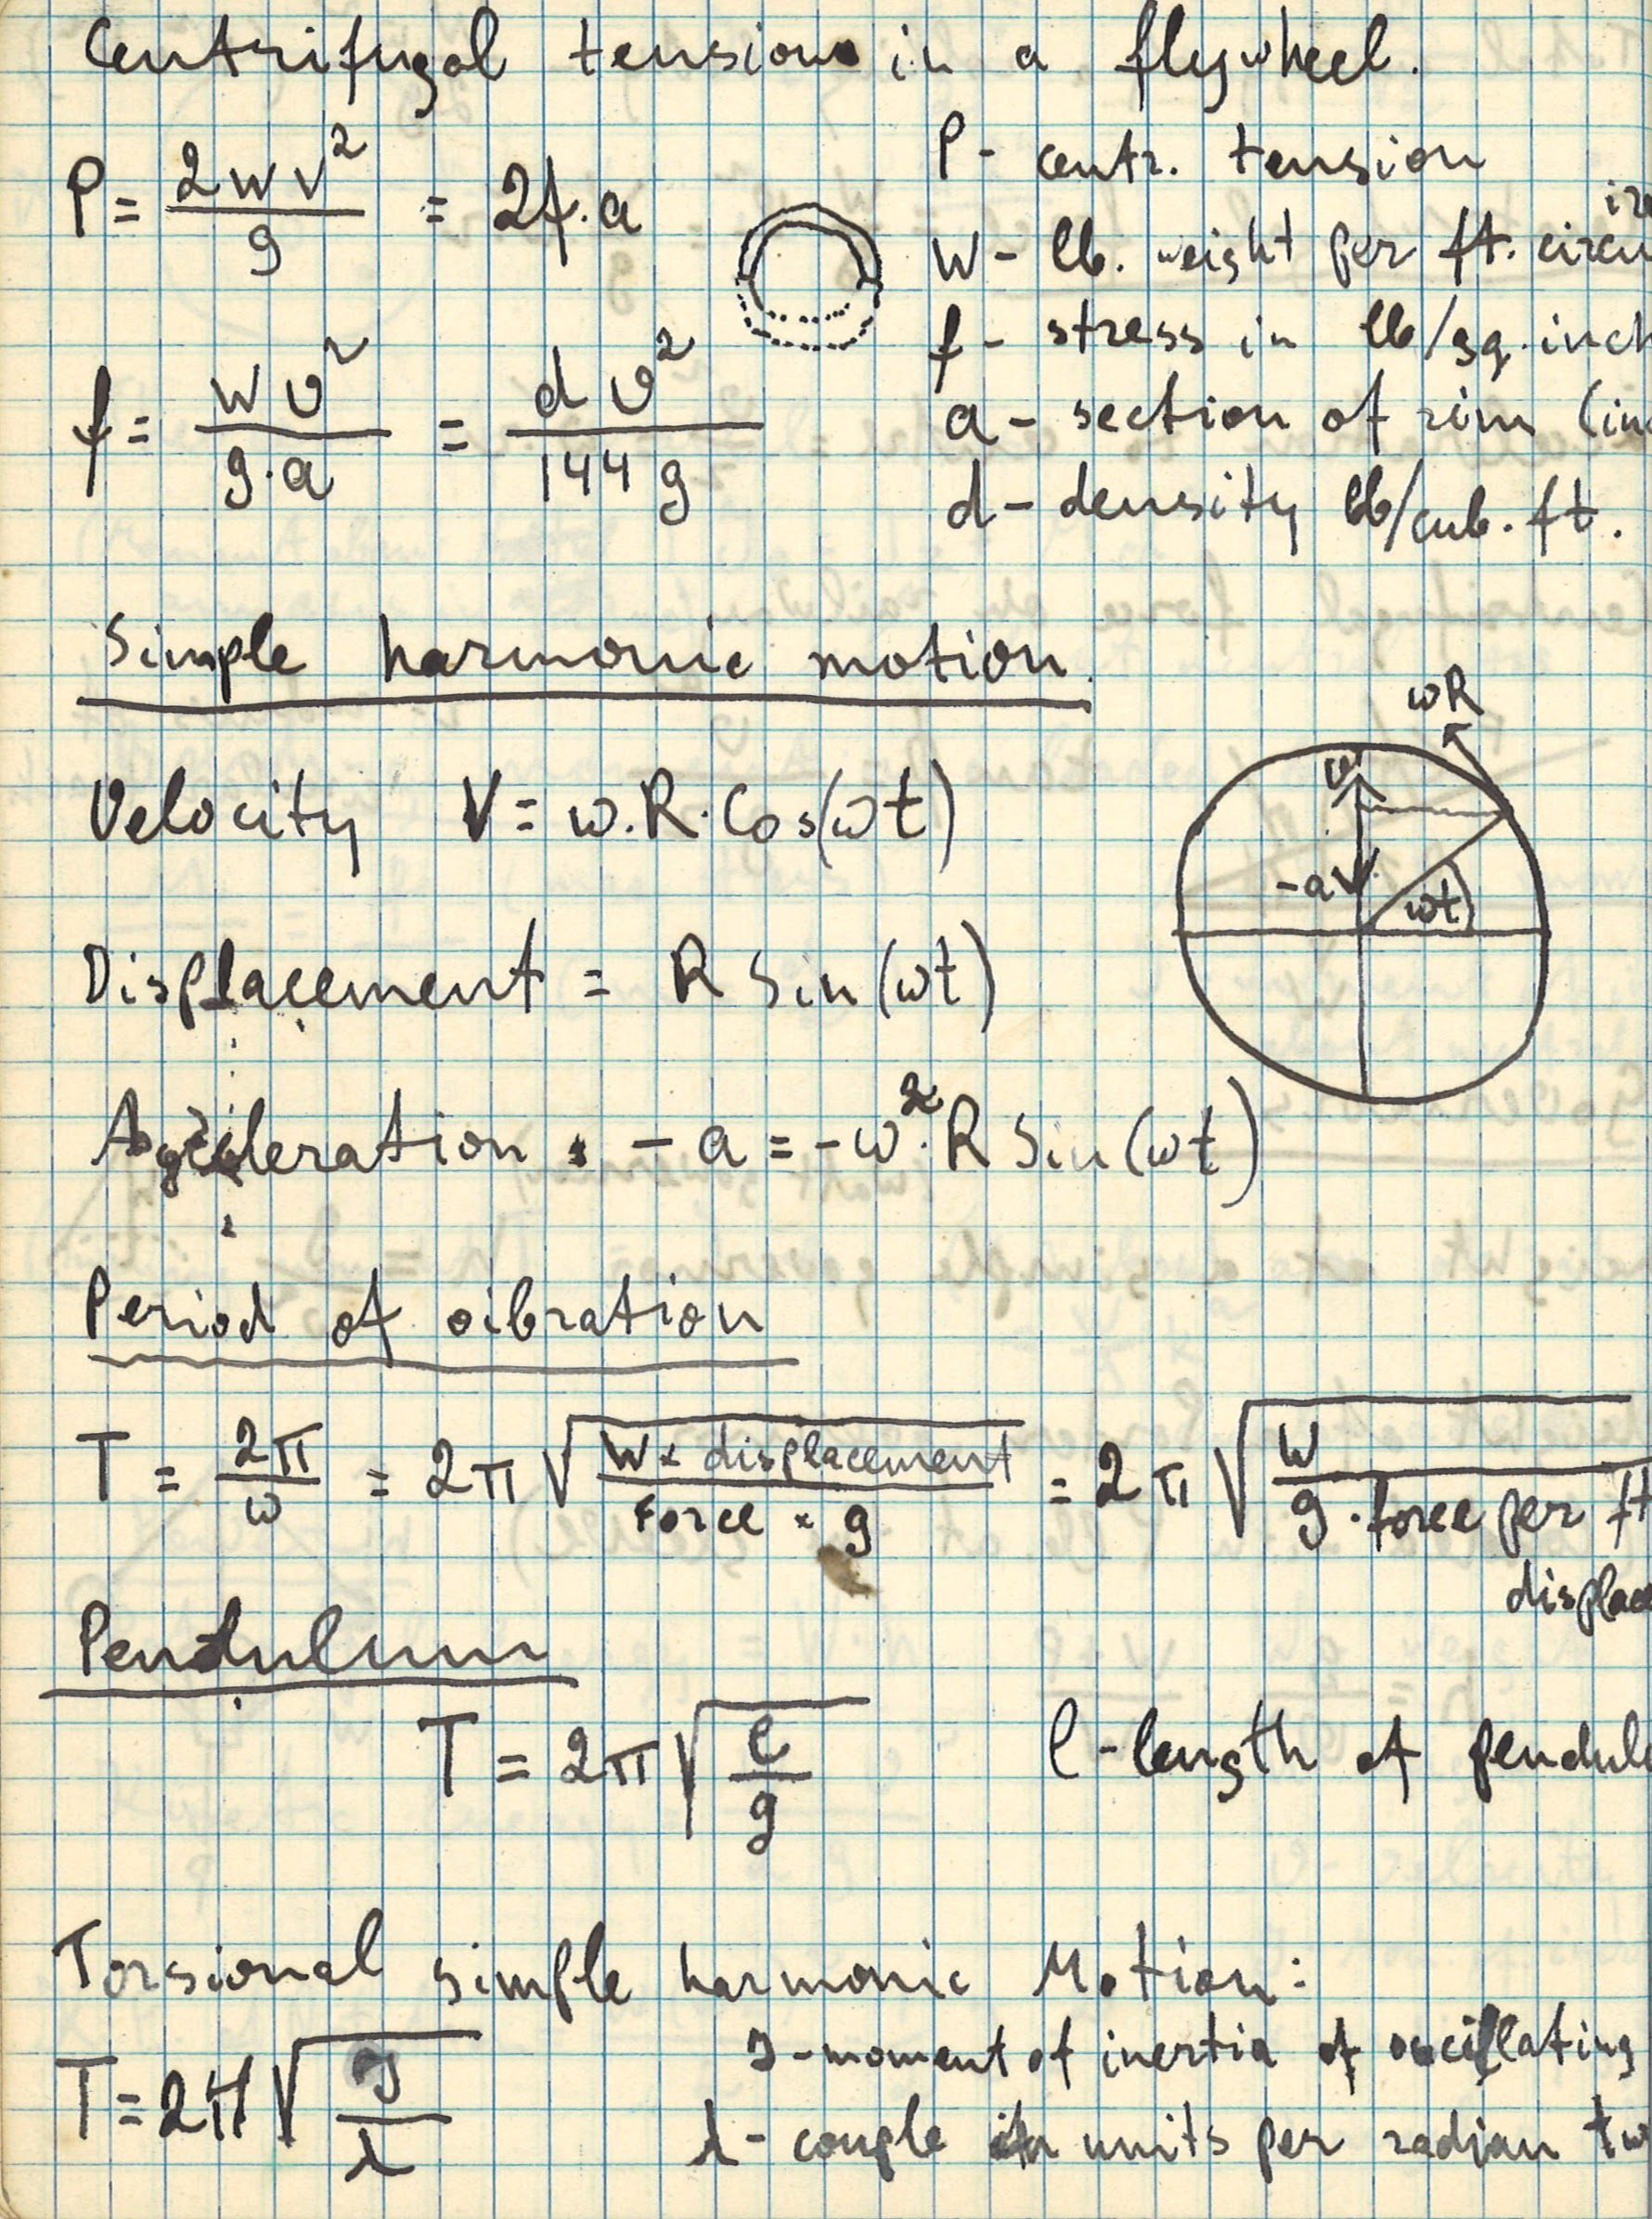 Centrifugal tension in a flywheel.
P = 2wv² / g = 2f.a
P - centr. tension
W - lb. weight per ft. circu
f - stress in lb/sq. inch
f = wv² / g.a = dv² / 144 g
a - section of rim (inc
d - density lb/cub. ft.
Simple harmonic motion.
ωR
v
-a
ωt
Velocity V = ω.R.Cos(ωt)
Displacement = R Sin(ωt)
Acceleration - a = -ω².R Sin(ωt)
Period of vibration
T = 2π / ω = 2π √(W × displacement / Force × g) = 2π √(W / g.force per ft
displace
Pendulum
T = 2π √(l / g)
l - length of pendulu
Torsional simple harmonic Motion:
T = 2π √(J / λ)
J - moment of inertia of oscillating
λ - couple in units per radian tw